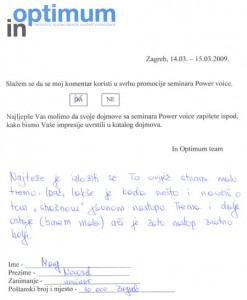 in optimum
Zagreb, 14.03. – 15.03.2009.
Slažem se da se moj komentar koristi u svrhu promocije seminara Power voice.
DA NE
Najljepše Vas molimo da svoje dojmove sa seminara Power voice zapišete ispod,
kako bismo Vaše impresije uvrstili u katalog dojmova.
In Optimum team
Najteže je izložiti se. To uvijek stvara malu
tremu. Ipak, lakše je kada nešto i naučiš o
tom "strašnom" javnom nastupu. Trema i dalje
ostaje (barem malo) ali je zato nastup znatno
bolji.
Ime -
Prezime -
Zanimanje -
Poštanski broj i mjesto - 10 000 Zagreb